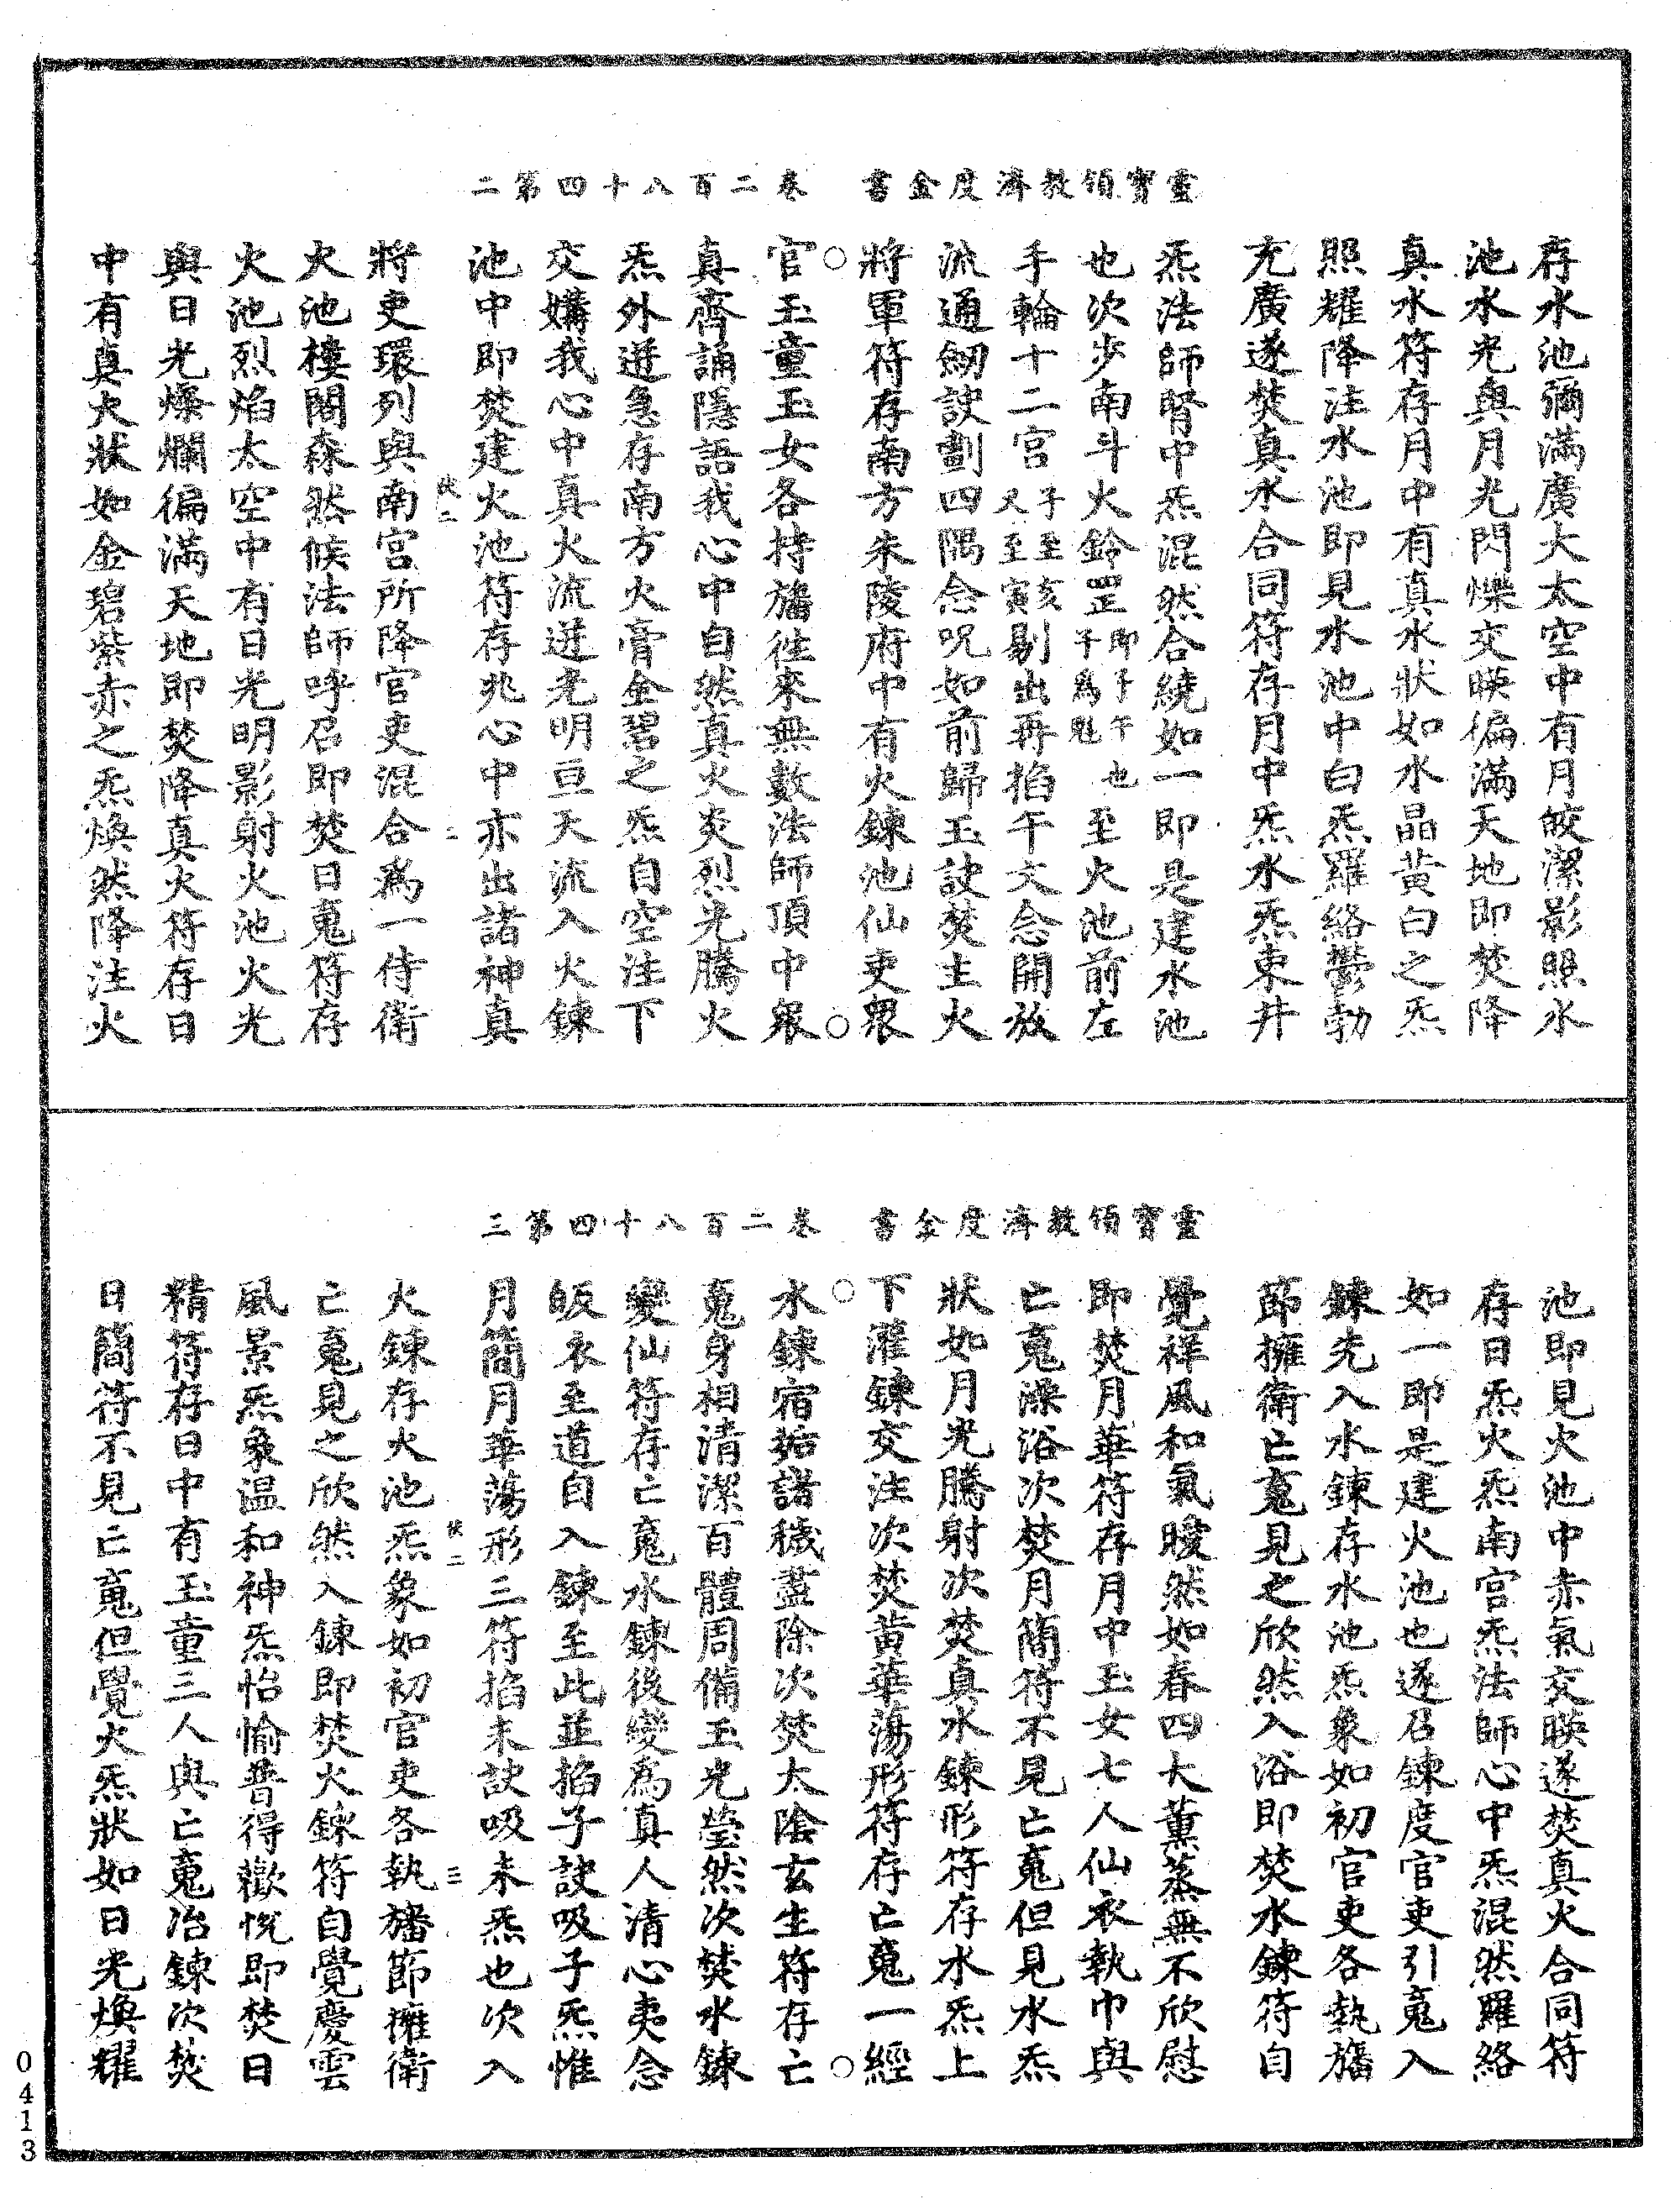 靈寶領教濟度金書　卷二百八十四第二
存水池彌滿廣大太空中有月皎潔影照水
池水光與月光閃爍交暎徧滿天地即焚降
真水符存月中有真水狀如水晶黃白之炁
照耀降注水池即見水池中白炁羅絡鬱勃
充廣遂焚真水合同符存月中炁水炁東井
炁法師腎中炁混然合繞如一即是建水池
也次步南斗火鈴罡即子午也千為魁至火池前左
手輪十二宮子至亥又至寅剔出再掐午文念開放
流通劒訣劃四隅念呪如前歸玉訣焚主火
將軍符存南方朱陵府中有火鍊池仙吏眾
官玉童玉女各持旛徃來無數法師頂中眾
真齊誦隱語我心中自然真火炎烈光騰火
炁外迸急存南方火膏金碧之炁自空注下
交媾我心中真火流迸光明亘天流入火鍊
池中即焚建火池符存兆心中亦出諸神真
將吏環列與南宮所降官吏混合為一侍衛
火池樓閣森然候法師呼召即焚日䰟符存
火池烈焰太空中有日光明影射火池火光
與日光燦爛徧滿天地即焚降真火符存日
中有真火狀如金碧紫赤之炁煥然降注火
靈寶領教濟度金書　卷二百八十四第三
池即見火池中赤氣交暎遂焚真火合同符
存日炁火炁南宮炁法師心中炁混然羅絡
如一即是建火池也遂召鍊度官吏引䰟入
鍊先入水鍊存水池炁象如初官吏各執旛
節擁衛亡䰟見之欣然入浴即焚水鍊符自
覺祥風和氣曖然如春四大薰蒸無不欣慰
即焚月華符存月中玉女七人仙衣執巾與
亡䰟澡浴次焚月簡符不見亡䰟但見水炁
狀如月光騰射次焚真水鍊形符存水炁上
下灌鍊交注次焚黃華蕩形符存亡䰟一經
水鍊宿垢諸穢蓋除次焚太陰玄生符存亡
䰟身相清潔百體周備玉光瑩然次焚水鍊
變仙符存亡䰟水鍊後變為真人清心夷念
皈衣至道自入鍊至此並掐子訣吸子炁惟
月簡月華蕩形三符掐未訣吸未炁也次入
火鍊存火池炁象如初官吏各執旛節擁衛
亡䰟見之欣然入鍊即焚火鍊符自覺慶雲
風景炁象溫和神炁怡愉普得歡悅即焚日
精符存日中有玉童三人與亡䰟冶鍊次焚
日簡符不見亡䰟但覺火炁狀如日光煥耀
0413